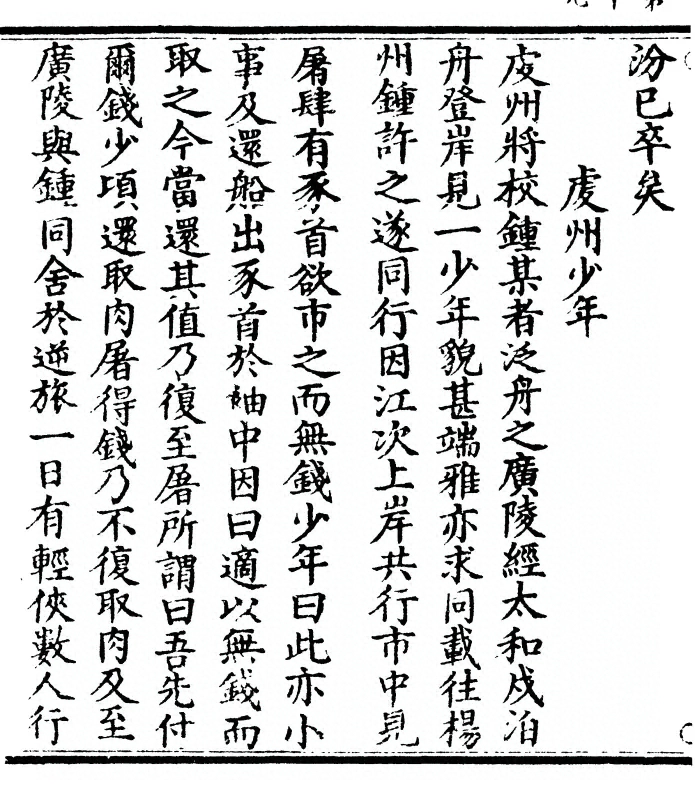 汾已卒矣
虔州少年
虔州將校鍾某者泛舟之廣陵經太和戍泊
舟登岸見一少年貌甚端雅亦求同載往楊
州鍾許之遂同行因江次上岸共行市中見
屠肆有豕首欲市之而無錢少年曰此亦小
事及還船出豕首於袖中因曰適以無錢而
取之今當還其值乃復至屠所謂曰吾先付
爾錢少頃還取肉屠得錢乃不復取肉及至
廣陵與鍾同舍於逆旅一日有輕俠數人行